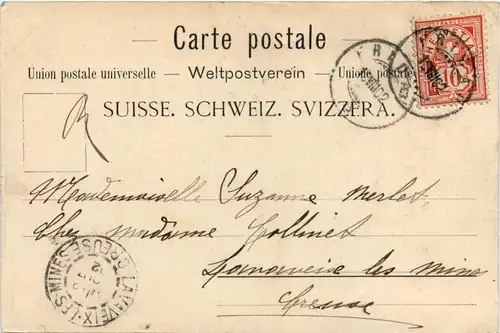 Carte postale
Union postale universelle — Weltpostverein — Unione postale
SUISSE. SCHWEIZ. SVIZZERA.
R
HELVETIA
FRANCO
10
Mademoiselle Suzanne Merlet,
Chez madame Collinet
Lavaveix les mines
Creuse
LAVAVEIX-LES-MINES
CREUSE